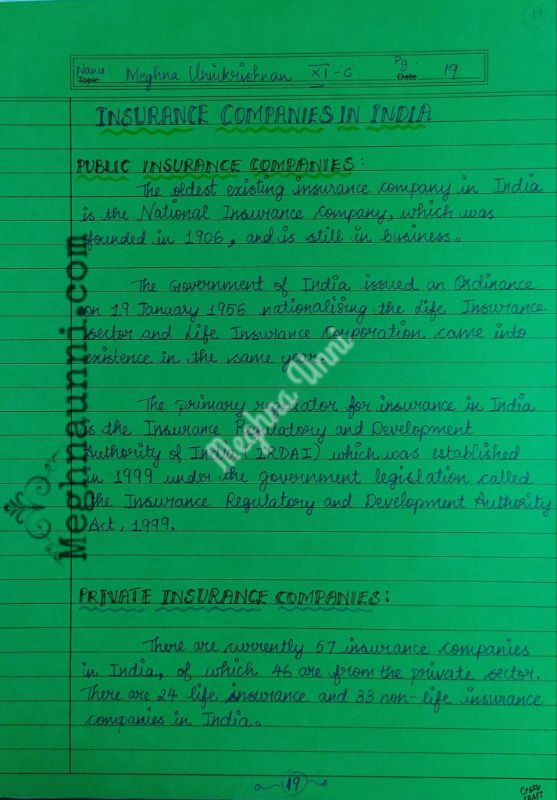 19
Name: Meghna Unnikrishnan XI-C Pg 19
Topic Date
INSURANCE COMPANIES IN INDIA
PUBLIC INSURANCE COMPANIES:
The oldest existing insurance company in India
is the National Insurance Company, which was
founded in 1906, and is still in business.
The Government of India issued an Ordinance
on 19 January 1956 nationalising the Life Insurance
sector and Life Insurance Corporation came into
existence in the same year.
The primary regulator for insurance in India
is the Insurance Regulatory and Development
Authority of India (IRDAI) which was established
in 1999 under the government legislation called
the Insurance Regulatory and Development Authority
Act, 1999.
PRIVATE INSURANCE COMPANIES:
There are currently 57 insurance companies
in India, of which 46 are from the private sector.
There are 24 life insurance and 33 non-life insurance
companies in India.
19
CRAZY
CRAFT
Meghnaunni.com
Meghna Unni